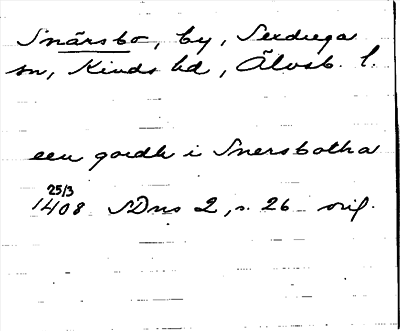 Snärsbo, by, Sexdrega
sn, Kinds hd, Älvsb. l.
een gordh i Snersbotha
25/3
1408 SDns 2, s. 26 orig.